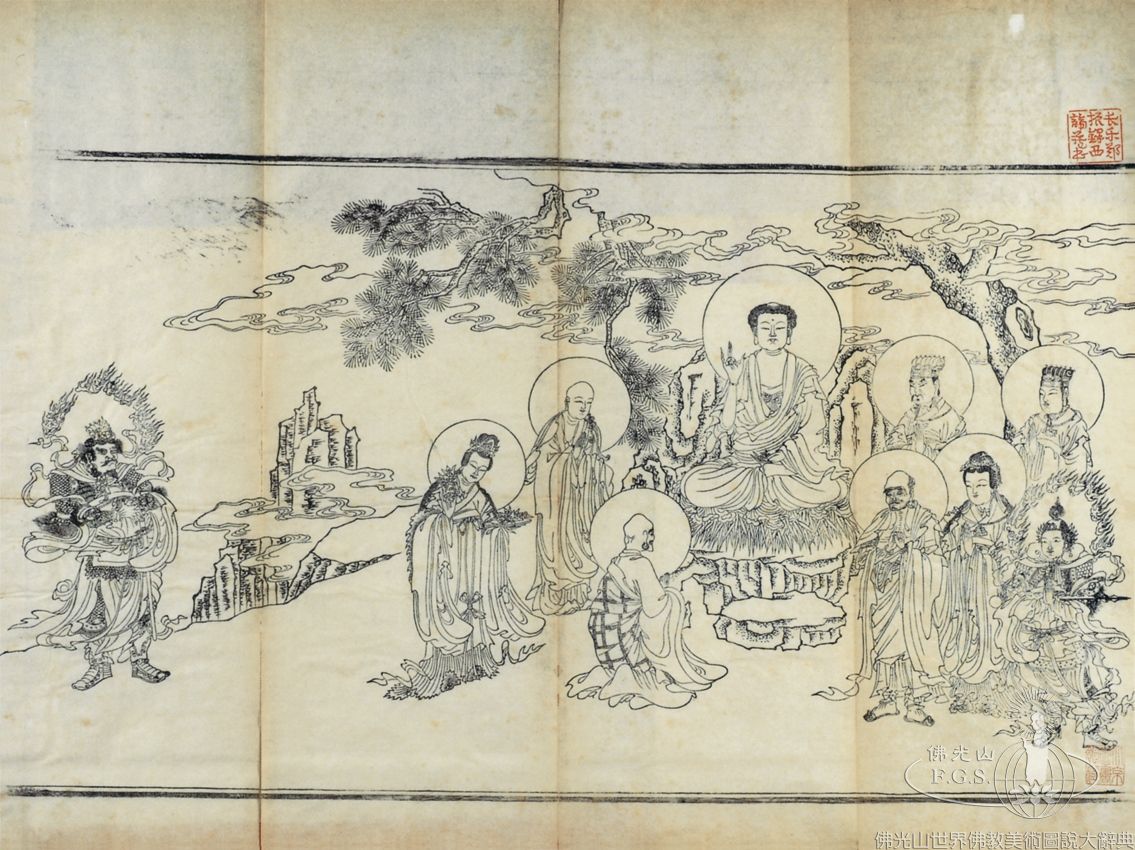 长乐郑
振铎西
諦藏书
佛光山
F.G.S.
佛光山世界佛教美術圖說大辭典